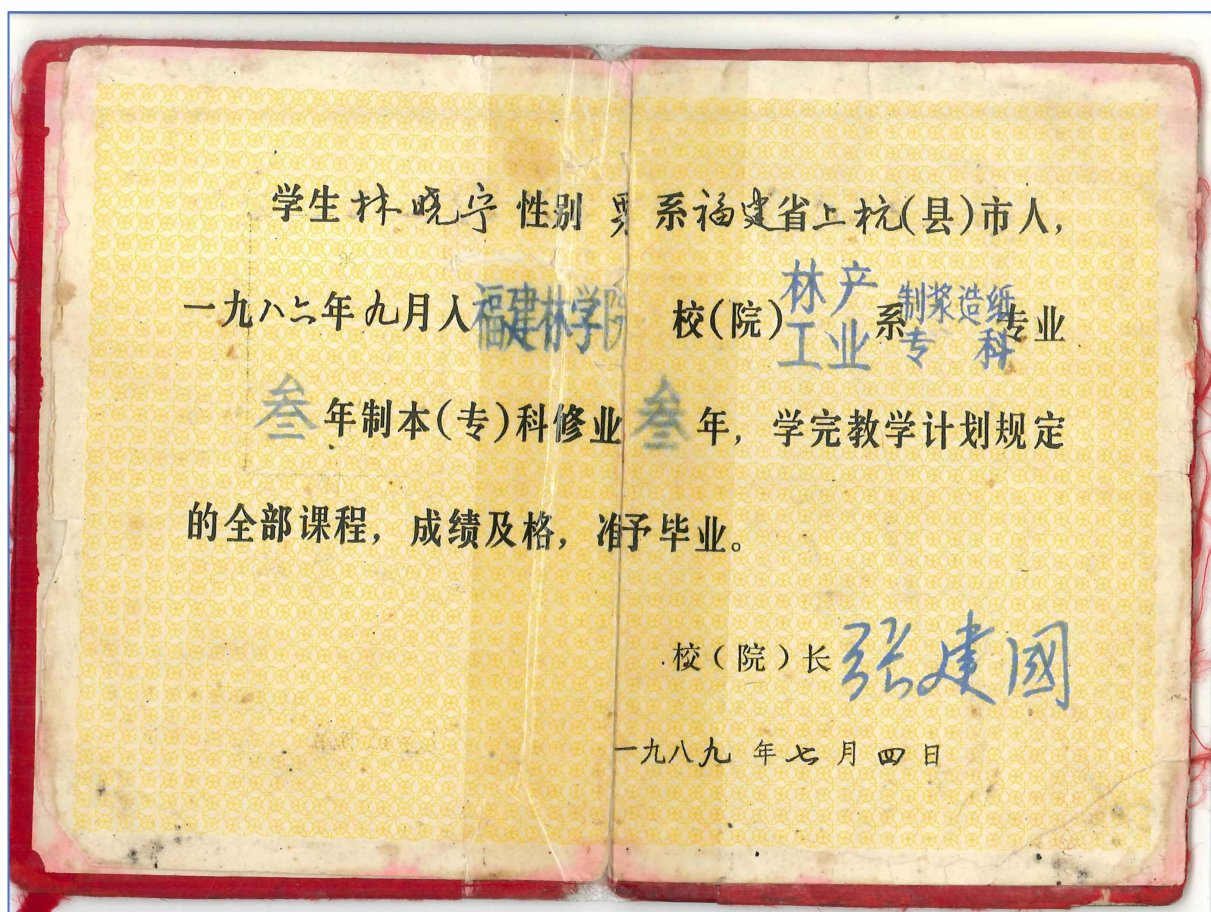 学生林晓宁性别男系福建省上杭(县)市人,
一九八六年九月入福建林学院校(院)林产工业系制浆造纸专科专业
叁年制本(专)科修业叁年,学完教学计划规定
的全部课程,成绩及格,准予毕业。
校(院)长张建國
一九八九年七月四日